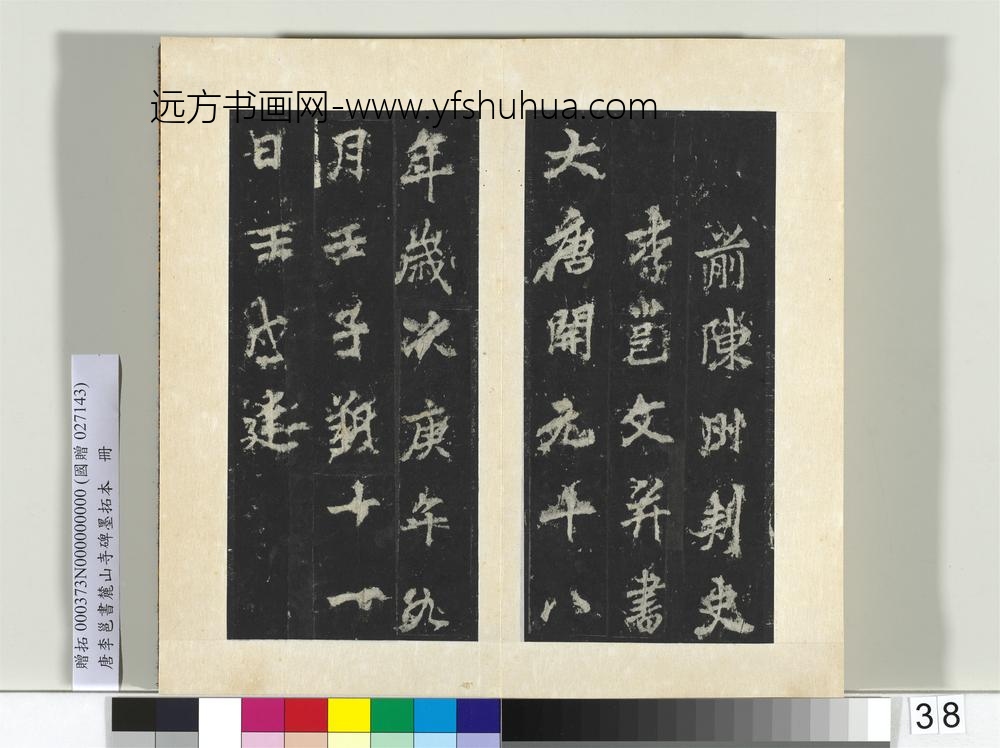 远方书画网-www.yfshuhua.com
前陳州刺史
李邕文并書
大唐開元十八
年歲次庚午九
月壬子朔十一
日壬戌建
贈拓 000373N000000000 (國贈 027143)
唐李邕書麓山寺碑墨拓本 冊
38